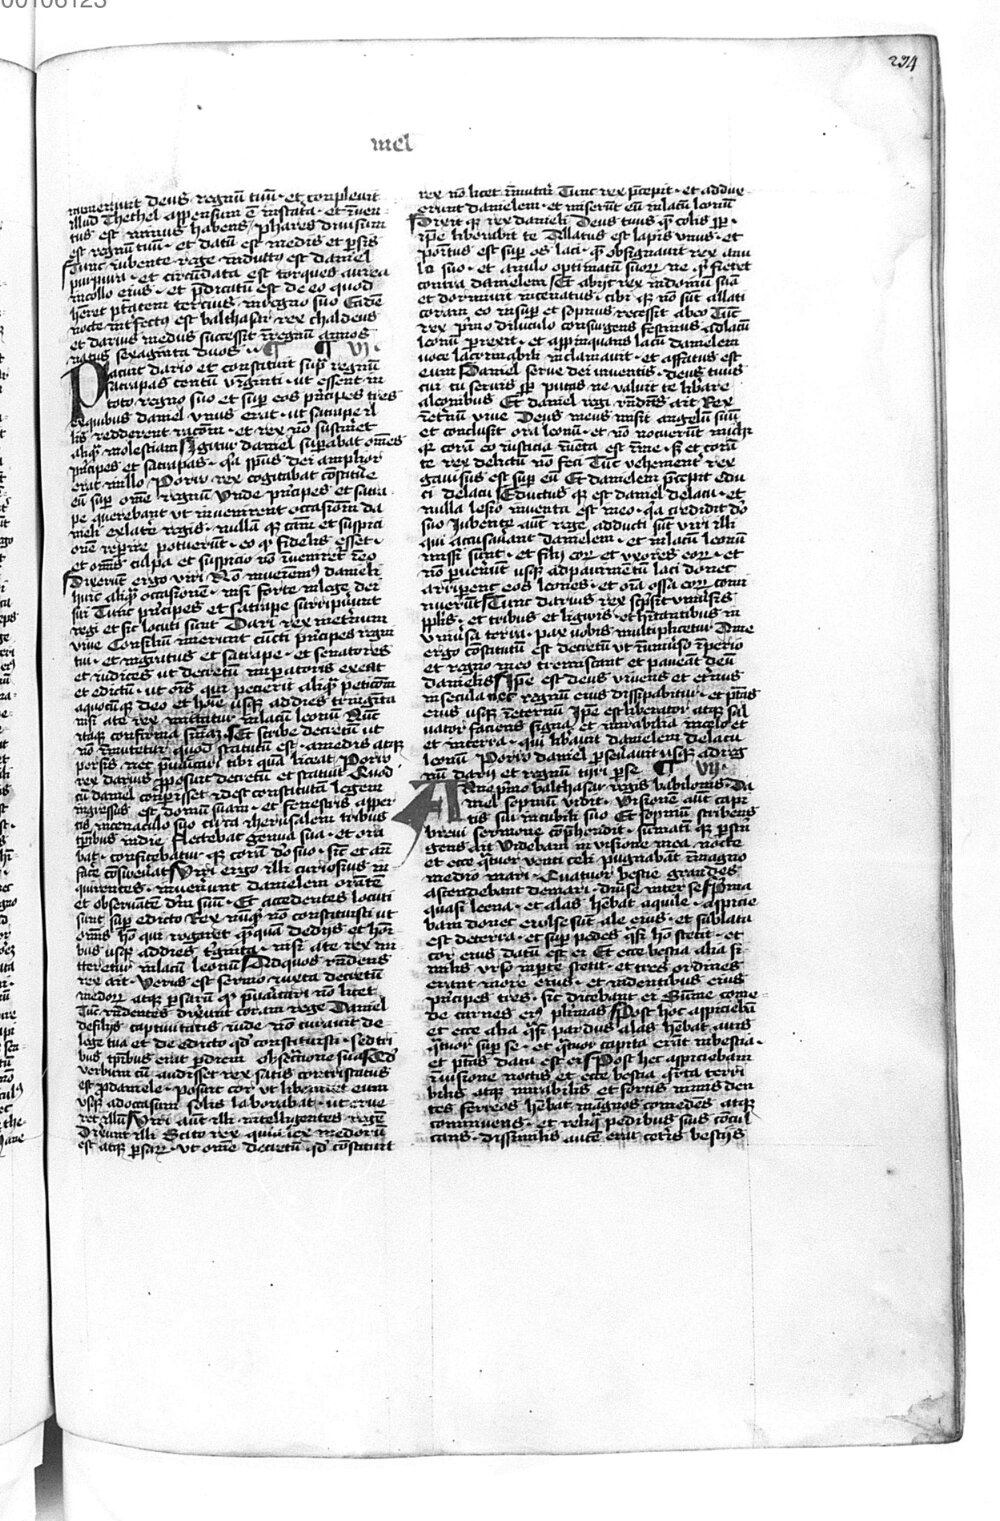 00106123
234
niel
numeravit deus regnū tuū · et conplevit
illud Thethel appensum ē in statera · et īven
tus est minus habens / phares divisum
est regnū tuū · et datū est medis et psis
Tunc iubente rege indutus est daniel
purpura · et circūdata est torques aurea
in collo eius · et pdicatū est de eo quod
hēret ptatem tercius in regno suo Eadē
nocte intfectus est balthasar rex chaldeus
et darius medus successit ī regnū annos
natus sexaginta duos · ¶ ¶ VI ·
Placuit dario et constituit sup regnū
satrapas centū viginti · ut essent in
toto regno suo et sup eos pncipes tres
ex quibus daniel vnus erat · ut satrape il
lis redderent racōm · et rex nō sustīet
aliqͣ molestiam Igitur daniel supabat om̄es
pncipes et satrapas · qͣ spūs dei amplior
erat in illo Porro rex cogitabat cōstitue
eū sup om̄e regnū Unde pncipes et satra
pe querebant ut invenirent occasiōm da
nieli ex latē regis · nullā qꝫ cām et suspici
onē repire potuerūt · eo qꝫ fidelis esset ·
et om̄is culpa et suspicio nō īveniret̄ ī eo
Dixerūt ergo viri Nō invenīem̄ danieli
huic aliqͣ occasionē · nisi forte in lege dei
sui Tunc pncipes et satrape surripuerūt
regi et sic locuti sunt Dari rex in eternum
vive Consiliū inierunt cūcti pncipes regni
tui · et magͣtus et satrape · et senatores
et iudices ut decretū impatoris exeat
et edictū · ut om̄is qui pecierit aliqͣ peticōm
a quocūqꝫ deo et hoīe usqꝫ ad dies triginta
nisi a te rex mittatur in lacū leonū Nūc
itaqꝫ confirma sn̄iaꝫ · et scribe decretū ut
nō īmutetur quod statutū est · a medis atqꝫ
persis nec pvaricari tibi quā liceat Porro
rex darius pposuit decretū et statuit Quod
cū daniel conpisset id est constitutā legem
ingressus est domū suam · et fenestris apper
tis in cenaculo suo cōtra iherusalem tribus
tpibus in die flectebat genua sua · et ora
bat · confitebatur qꝫ corā dō suo · sic et an̄
face cōsueuat Viri ergo illi curiosius in
quirentes · invenīunt danielem orātē
et obsecrātē dm̄ suū · Et accedentes locuti
sunt sup edicto Rex nūqͥ nō constituisti ut
om̄is hō qui rogaret qͣ quā de diis et hoī
bus usqꝫ ad dies tͥginta · nisi a te rex mi
tteretur in lacū leonū Ad quos rn̄dens
rex ait · Verus est sermo iuxta decretū
medoꝝ atqꝫ psarū qꝫ pvaricari nō licet
Tūc rn̄dentes dixerūt coram rege Daniel
de filiis captivitatis iude nō curavit de
lege tua et de edicto qd constituisti · sed tri
bus tpibus erat p diem obsecͣtione sua Qd
verbum cū audisset rex satis contristatus
est p daniele · posuit cor ut liberaret eum
usqꝫ ad occasum solis laborabat · ut erue
ret illū Viri aut illi intelligentes regē
dixerūt illi Scito rex quia lex medorū
est atqꝫ psaꝝ · ut om̄e decretū · qd cōstituit
rex nō licet īmutari Tunc rex pcepit · et addux
erunt danielem · et miserūt eū in lacū leonū
Dixit qꝫ rex danieli Deus tuus quē colis sp ·
ipse liberabit te Allatus est lapis vnus · et
positus est sup os laci · quē obsignavit rex anu
lo suo · et anulo optimatū suoꝝ ne qͥ fieret
contra danielem Et abijt rex in domū suā
et dormivit incenatus · cibi qꝫ nō sūt allati
coram eo insup et sopnus recessit ab eo Tūc
rex pmo diluculo consurgens festinus ad lacū
leonū prexit · et appinquans lacū danielem
voce lacrimabili inclamavit · et affatus est
eum Daniel serve dei viventis · deus tuus
cui tu servis sp putas ne valuit te libare
a leonibus Et daniel regi rn̄dens ait Rex
ī etnū vive Deus meus misit angelū suū
et conclusit ora leonū · et nō nocuerūt michi
qꝫ corā eo iusticia īventa est ī me · sꝫ et corā
te rex delictū nō feci Tūc vehement rex
gavisus est sup eū Et danielem pcepit edu
ci de lacu Eductus qꝫ est daniel de lacu · et
nulla lesio inventa est ī eo · qͣ credidit dō
suo Iubente aut rege adducti sūt viri illi
qui accusauant danielem · et in lacū leonū
missi sunt · et filij eoꝝ et vxores eoꝝ · et
nō pvenerūt usqꝫ ad pavimētū laci donec
arriperent eos leones · et om̄a ossa eoꝝ cōmi
nuerūt Tunc darius rex scpsit vniversis
pplis · et tribus et ligwis · et hitantibus in
vniūsa terra · pax vobis multiplicetur A me
ergo cōstitutū est decretū ut ī univso īperio
et regno meo tremiscant et paveāt deū
danielis Ipse est deus vivens et etnus
in secula nec regnū eius dissipabitur · et ptas
eius usqꝫ ī eternū Ipse est liberator atqꝫ sal
vator faciens signa · et mirabilia in celo et
et in terra · qui libavit danielem de lacu
leonū Porro daniel pseveravit usqꝫ ad reg
nū darij et regnū ciri pse ¶ VII ·
Anno pmo balthasar regis babilonis · Da
niel sopniū vidit · Visionē aūt capi
tis sui in cubili suo Et sopniū scribens
brevi sermone cōphendit · sumatī qꝫ pstrī
gens ait Videbam in visione mea nocte
et ecce qͣtuor venti celi pugnabāt in magno
medio mari · Quatuor bestie grandes
ascendebant de mari · divse inter se Pma
quasi leena · et alas hēbat aquile · aspicie
bam donec evulse sūt ale eius · et sublata
est de terra · et sup pedes qͣsi hō stetit · et
cor eius datū est ei Et ecce bestia alia si
milis vrso in pte stetit · et tres ordines
erant in ore eius · et in dentibus eius
pncipes tres · sic dicebant ei Surge come
de carnes eius plurimas Post hoc aspiciebā
et ecce alia qͣsi pardus alas hēbat avis
qͣtuor sup se · et qͣtuor capita erāt in bestia ·
et ptas data est ei Post hec aspiciebam
in visione noctis et ecce bestia qͣrta terri
bilis atqꝫ mirabilis et fortis nimis den
tes ferreos hēbat magnos comedēs atqꝫ
comminuens · et reliqͣ pedibus suis cōcul
cans · dissimilis autē erat cetīs bestijs